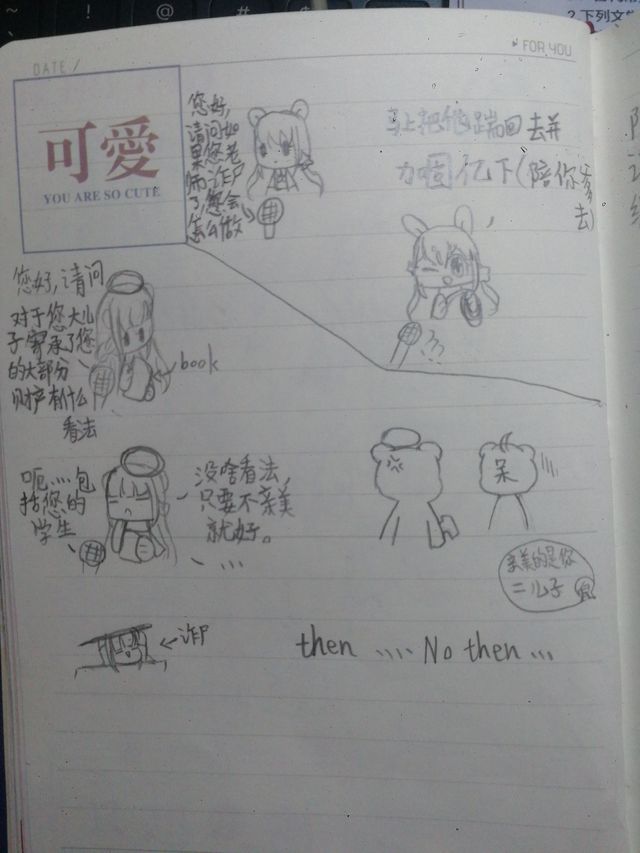 2.下列文
DATE /
FOR YOU
可愛
YOU ARE SO CUTE
您好,
请问如
果您老
师诈尸
了,您会
怎么做
马上把他踹回去并
加固亿下(陪你爹
去)
您好,请问
对于您大儿
子穿承了您
的大部分
财产有什么
看法
book
呃....包
括您的
学生
没啥看法,
只要不亲美
就好。
...
呆
亲美的是您
二儿子
诈尸
then .... No then ...